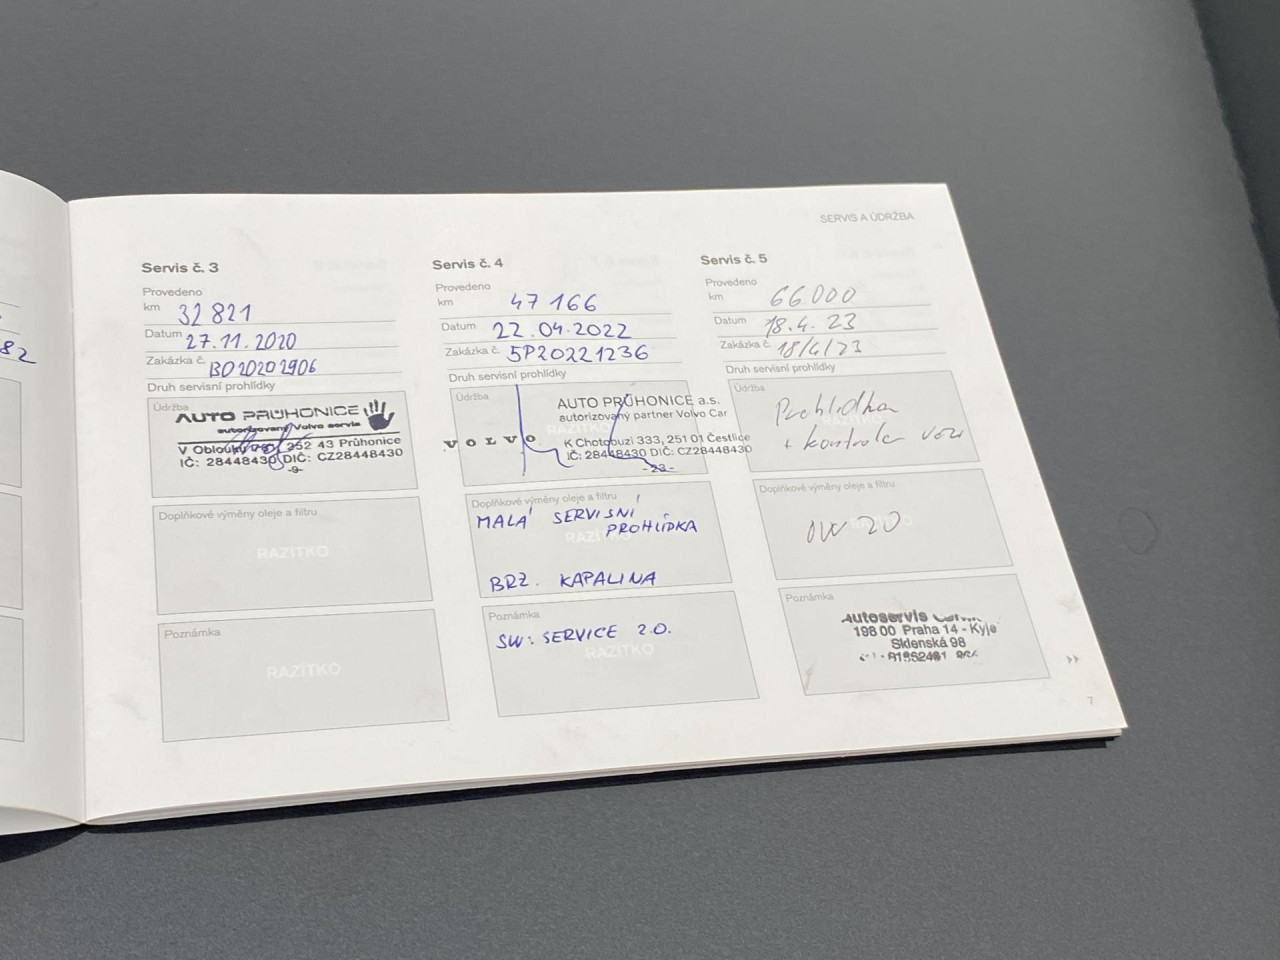 SERVIS A ÚDRŽBA
82
Servis č. 3
Provedeno
km 32 821
Datum 27.11.2020
Zakázka č. BO20202906
Druh servisní prohlídky
Údržba
AUTO PRŮHONICE
autorizovaný Volvo servis
V Oblouku 252 43 Průhonice
IČ: 28448430 DIČ: CZ28448430
-9-
Doplňkové výměny oleje a filtru
RAZÍTKO
Poznámka
RAZÍTKO
Servis č. 4
Provedeno
km 47 166
Datum 22.04.2022
Zakázka č. 5P20221236
Druh servisní prohlídky
Údržba
AUTO PRŮHONICE a.s.
autorizovaný partner Volvo Car
VOLVO
K Chotobuzi 333, 251 01 Čestlice
IČ: 28448430 DIČ: CZ28448430
-23-
Doplňkové výměny oleje a filtru
MALÁ SERVISNÍ
PROHLÍDKA
RAZÍTKO
BRZ. KAPALINA
Poznámka
SW: SERVICE 2.0.
RAZÍTKO
Servis č. 5
Provedeno
km 66000
Datum 18.4.23
Zakázka č. 18/4/23
Druh servisní prohlídky
Údržba
Prohlídka
RAZÍTKO
+ kontrola vozu
Doplňkové výměny oleje a filtru
0W 20
RAZÍTKO
Poznámka
Autoservis
198 00 Praha 14 - Kyje
Sklenská 98
7